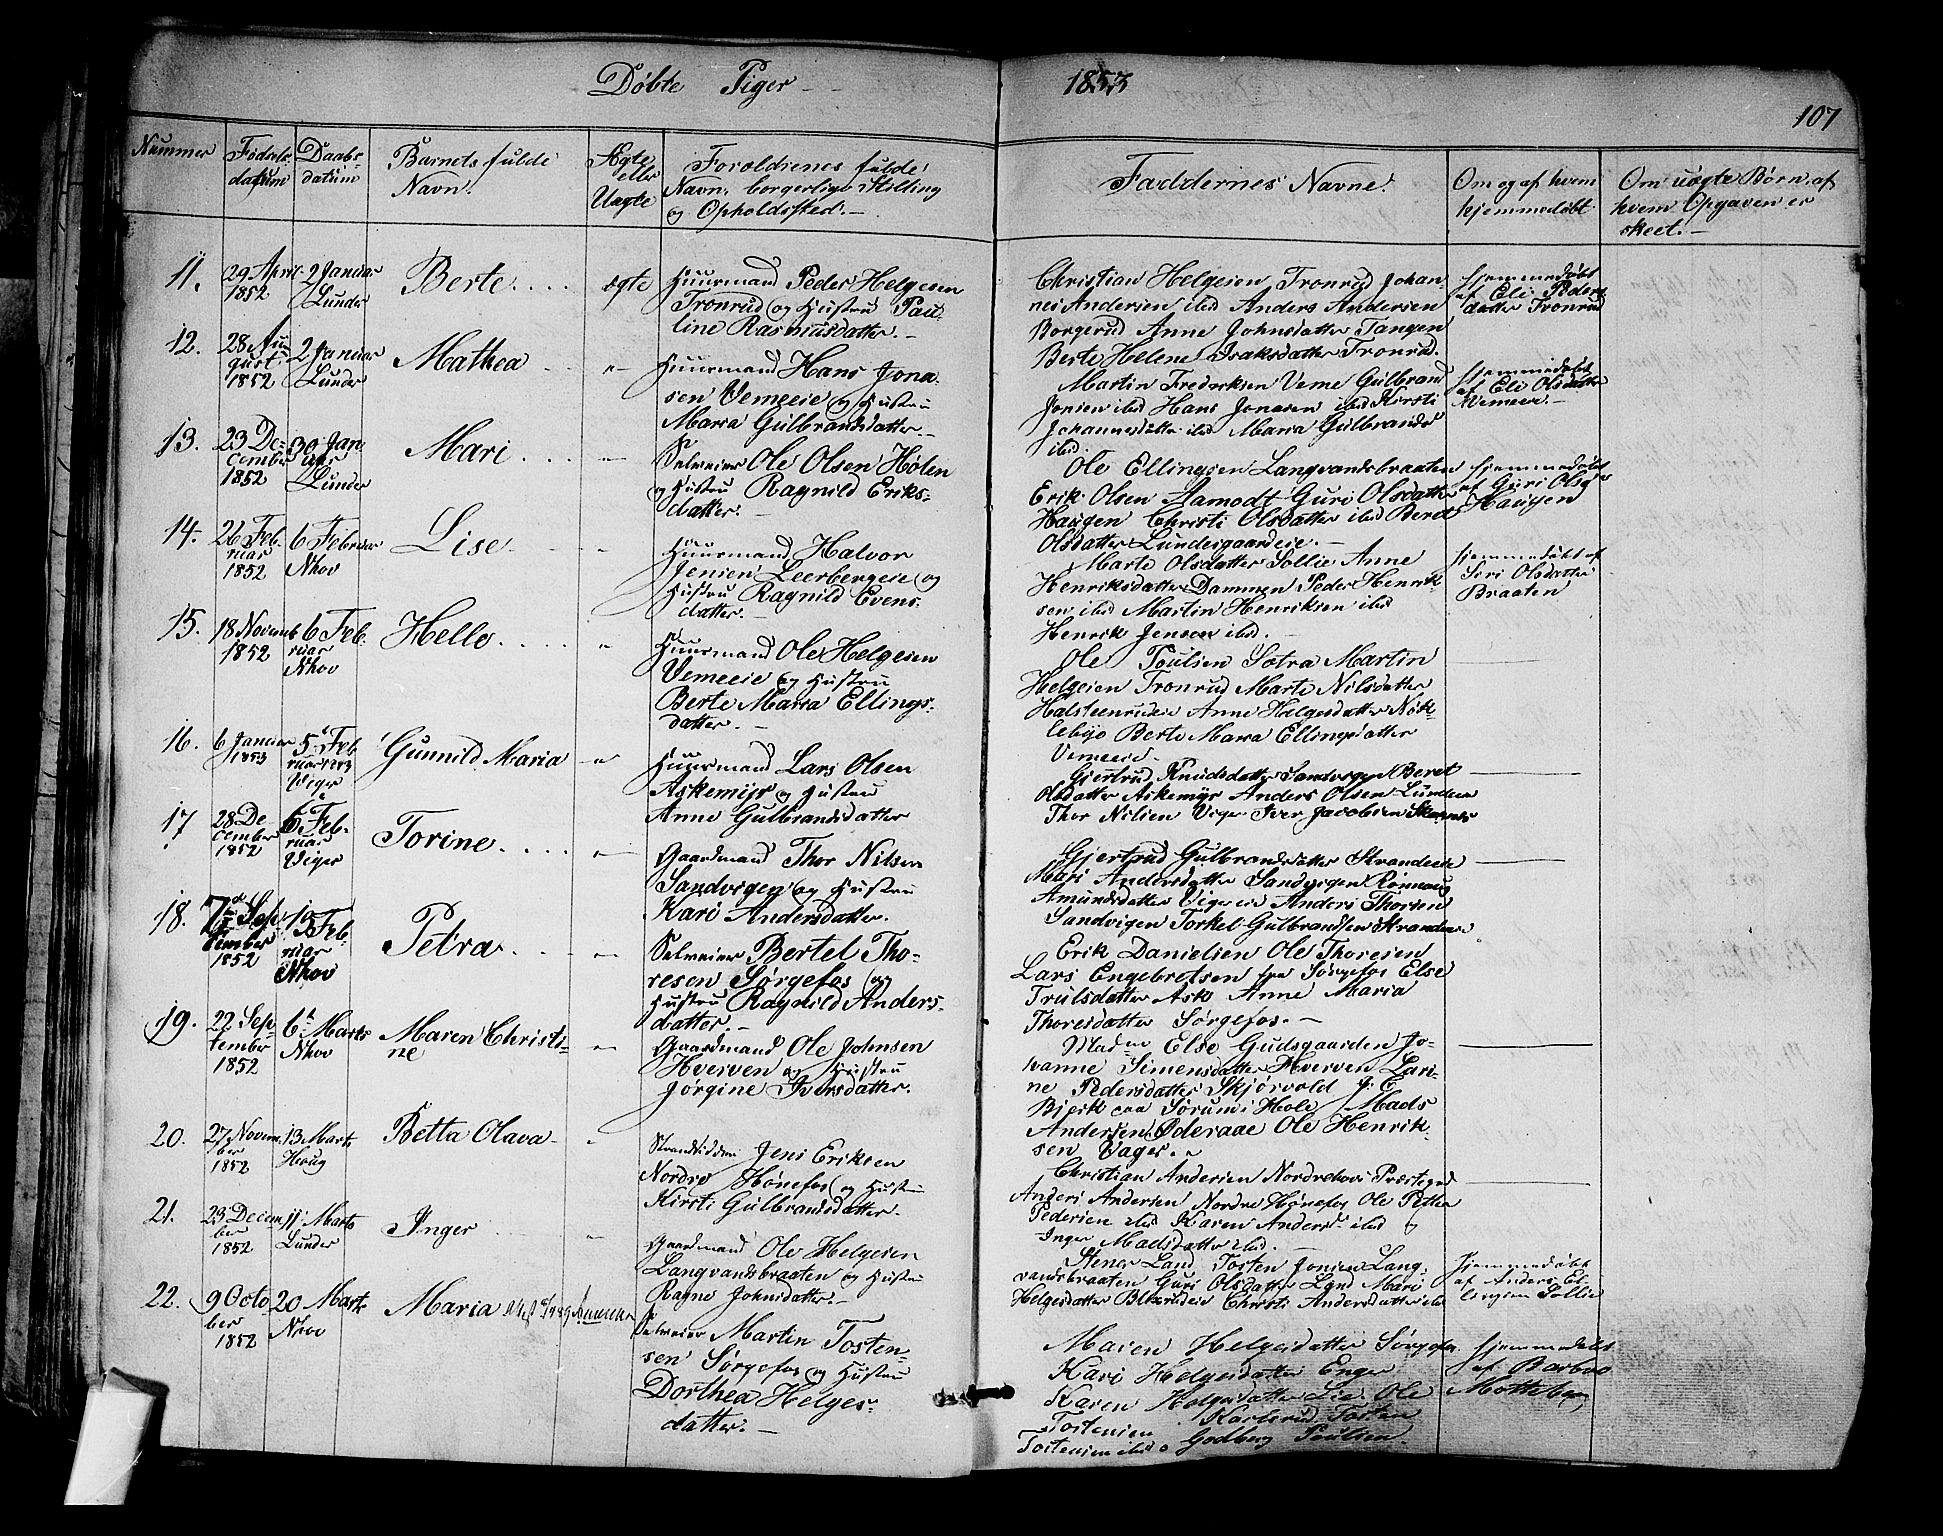 Döbte Piger —
1853
107
Nummer
Födsels
datum
Daabs
datum
Barnets fulde
Navn.
Ægte
eller
Uægte
Forældrenes fulde
Navn, borgerlige Stilling
og Opholdssted. —
Faddernes Navne.
Om og af hvem
hjemmedöbt
Om uægte Børn, af
hvem Opgaven er
skeet. —
11.
29 April
1852
2 Januar
Lunder
Berte
ægte
Huusmand Peder Helgesen
Tronrud og Hustru Pau-
line Rasmusdatter. —
Christian Helgesen Tronrud Johan-
nes Andersen ibid Anders Andersen
Borgerud Anne Johnsdatter Tangen
Berte Helene Isaksdatter Tronrud.
Hjemmedöbt
af Eli Peders
datter Tronrud
12.
28 Au-
gust
1852
2 Januar
Lunder
Mathea
"
Huusmand Hans Jona-
sen Vemeeie og Hustru
Maria Gulbrandsdatter. —
Martin Fredriksen Veme Gulbrand
Jonsen ibid Hans Jonasen ibid Kirsti
Johannesdatter ibid Maria Gulbrands
ibid.
Hjemmedöbt
af Eli Olsdatter
Vemeeie. —
13.
23 De-
cember
1852
30 Jan
uar
Lunder
Mari
"
Selveier Ole Olsen Hølen
og Hustru Ragnild Eriks-
datter.
Ole Ellingsen Langvandsbraaten
Erik Olsen Guri Olsdatter
Haugen Christi Olsdatter ibid Beret
Olsdatter Lundesgaardeie. —
Hjemmedöbt
af Guri Olsd
Haugen
14.
26 Feb-
ruar
1852
6 Februar
Nhov
Lise
"
Huusmand Halvor
Jensen Leerbergeie og
Hustru Ragnild Evens-
datter. —
Marte Olsdatter Sollie Anne
Henriksdatter Dammen Peder Henrik-
sen ibid Martin Henriksen ibid
Henrik Jensen ibid. —
Hjemmedöbt af
Siri Olsdatter
Braaten
15.
18 Novemb
1852
6 Feb-
ruar
Nhov
Helle
"
Huusmand Ole Helgesen
Vemeeie og Hustru
Berte Maria Ellings-
datter. —
Ole Poulsen Sætra Martin
Helgesen Tronrud Marte Nilsdatter
Halsteenrudeie Anne Helgesdatter Nøk-
lebye Berte Maria Ellingsdatter
Vemeeie. —
16.
6 Januar
1853
5 Feb
ruar 1853
Viger
Gunnild Maria
"
Huusmand Lars Olsen
Askemyr og Hustru
Anne Gulbrandsdatter
Gjertrud Knudsdatter Sandvigen Beret
Olsdatter Askemyr Anders Olsen Lundeeie
Thor Nilsen Viger Iver Jacobsen
17
28 De
cember
1852
6 Feb-
ruar
Viger
Torine
"
Gaardmand Thor Nilsen
Sandvigen og Hustru
Kari Andersdatter.
Gjertrud Gulbrandsdatter Strandeeie
Mari Andersdatter Sandvigen Rönnaug
Amundsdatter Viger Anders Thorsen
Sandvigen Torkel Gulbrandsen Strandeeie
18.
7 Sep-
tember
1852
13 Feb-
ruar
Nhov
Petra
"
Selveier Bertel Tho-
resen Sørgefos og
Hustru Ragnild Anders-
datter. —
Erik Danielsen Ole Thoresen
Lars Engebretsen fra Sørgefos Else
Trulsdatter Ask Anne Maria
Thoresdatter Sørgefos. —
19.
22 Sep-
tember
1852
6 Marts
Nhov
Maren Christi-
ne
"
Gaardmand Ole Johnsen
Hverven og Hustru
Jörgine Iversdatter.
Madme Else Gudsgaarden Jo-
hanne Simensdatter Hverven Lari-
ne Pedersdatter Skjørvold J. E.
Bjerk paa Sørum i Hole Mads
Andersen Oderaae Ole Henrik-
sen Vager.
20.
27 Novem-
ber
1852
13 Marts
Houg
Betta Olava
"
Strandsidder Jens Eriksen
Nordre Hønefos og Hustru
Kirsti Gulbrandsdatter.
Christian Andersen Nordrehovs Præstegrd
Anders Andersen Nordre Hønefos Ole Petter
Pedersen ibid Karen Andersd ibid og
Inger Madsdatter ibid.
21.
23 Decem-
ber
1852
11 Marts
Lunder
Inger
"
Gaardmand Ole Helgesen
Langvandsbraaten og Hustru
Ragne Johnsdatter. —
Stener Land Tosten Jonsen Lang-
vandsbraaten Guri Olsdatter Land Mari
Helgesdatter Christi Andersdatter ibid
Hjemmedöbt
af Anders El-
lingsen Sollie
22.
9 Octo
ber
1852
20 Marts
Nhov
Maria
Selveier Martin Tosten-
sen Sørgefos og Hustru
Dorthea Helges-
datter. —
Maren Helgesdatter Sørgefos
Kari Helgesdatter Enger
Karen Helgesdatter Lie Ole
Tostensen Karlsrud Tosten
Tostensen ibid Godberg Poulsen.
Hjemmedöbt
af Barbro
Motteberg